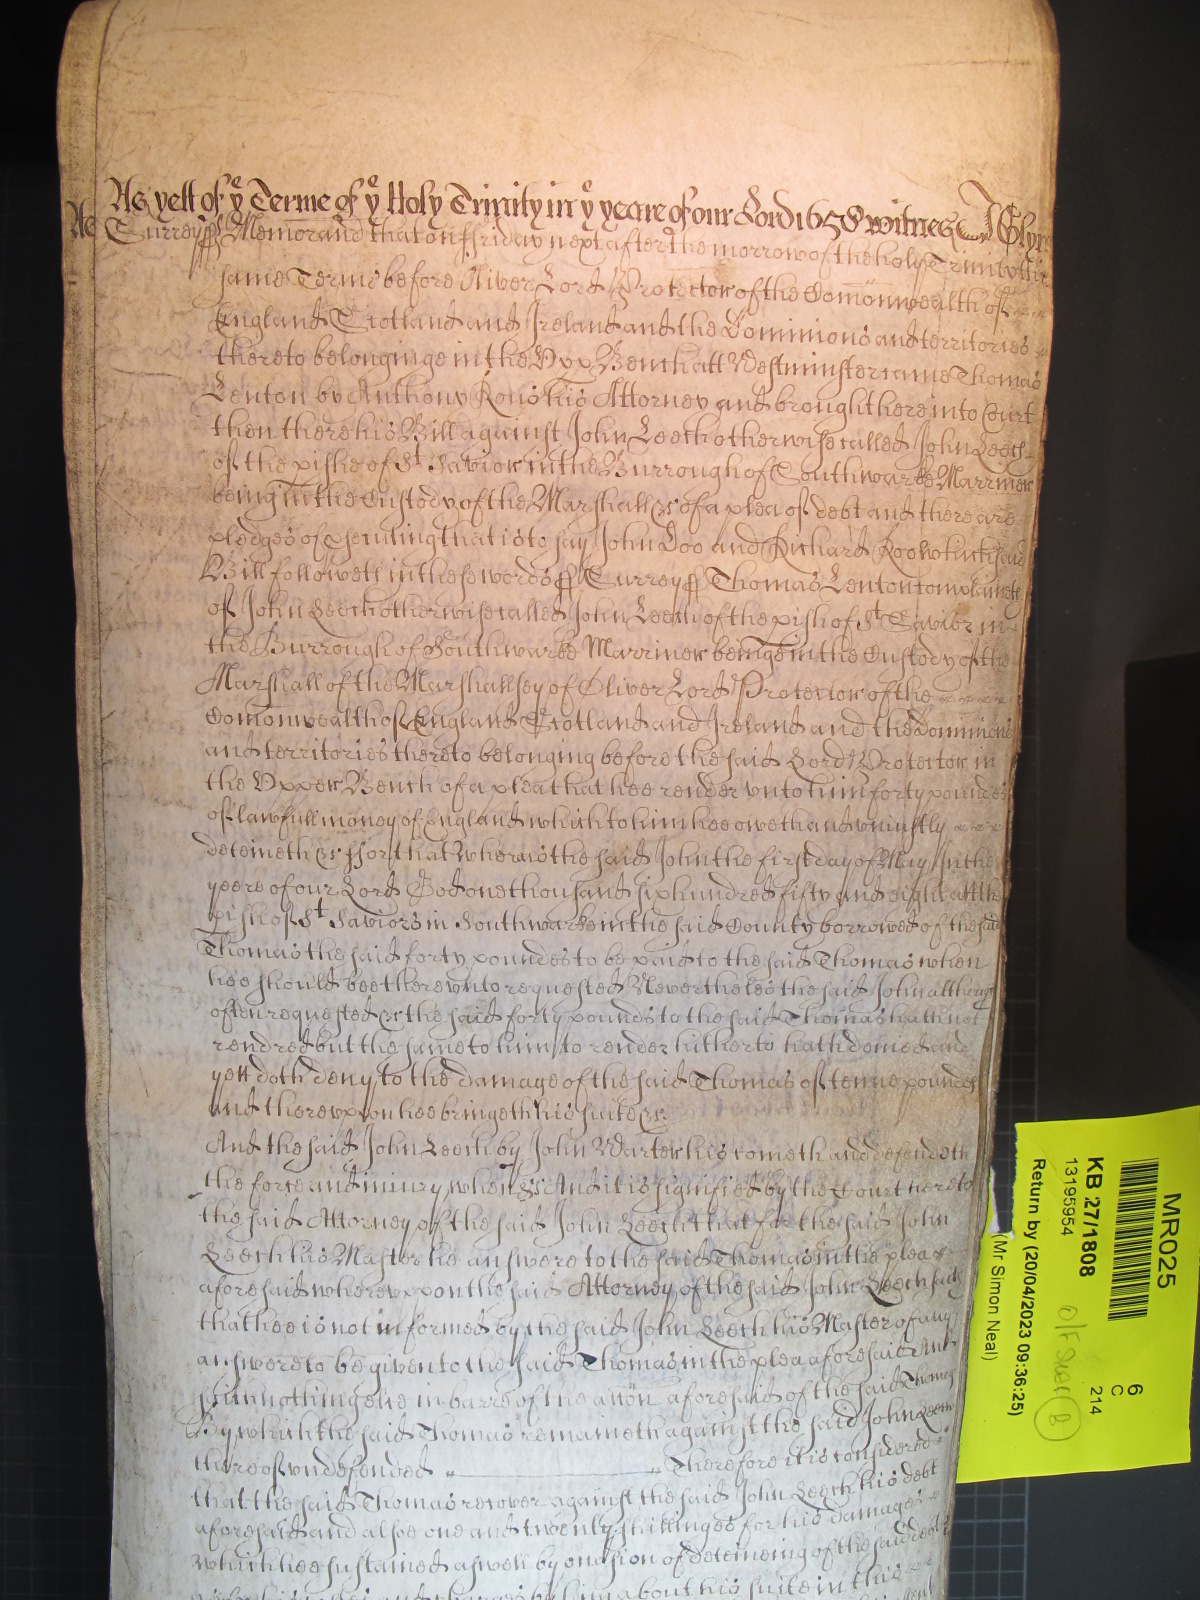 As yett of yᵉ Terme of yᵉ Holy Trinity in yᵉ yeare of our Lord 1658 witnes J Glyn
As
Surrey ss Memorand that on Friday next after the morrow of the holy Trinity this
same Terme before Oliver Lord Protector of the Comonwealth of
England Scotland and Ireland and the Dominions and territories
thereto belonginge in the Vpp Bench att Westminster came Thomas
Lenton by Anthony Rous his Attorney and brought here into Court
then there his Bill against John Leech otherwise called John Leech
of the pishe of Sᵗ Savior in the Burrough of Southwarke Marriner
being in the Custody of the Marshall &c of a plea of debt and there are
pledges of psecuting that is to say John Doo and Richard Roo which said
Bill followeth in these words ss Surrey ss Thomas Lenton complaineth
of John Leech otherwise called John Leech of the pish of Sᵗ Savior in
the Burrough of Southwarke Marriner beinge in the Custody of the
Marshall of the Marshallsey of Oliver Lord Protector of the
Comonwealth of England Scotland and Ireland and the Dominions
and territories thereto belonging before the said Lord Protector in
the Vpper Bench of a plea that hee render vnto him forty poundes
of lawfull money of England which to him hee oweth and vniustly
deteineth &c For that Whereas the said John the first day of May in the
yeere of our Lord God one thousand six hundred fifty and eight att the
pish of Sᵗ Saviors in Southwarke in the said County borrowed of the said
Thomas the said forty poundes to be paid to the said Thomas when
hee should bee therevnto requested Neverthelès the said John although
often requested &c the said forty pounds to the said Thomas hath not
rendred but the same to him to render hitherto hath denied and
yett doth deny to the damage of the said Thomas of tenne poundes
and therevpon hee bringeth his suite &c
And the said John Leech by John Warter his cometh and defendeth
the force and iniury when &c And it is signified by the Court here to
the said Attorney of the said John Leech that for the said John
Leech his Master he answere to the said Thomas in the plea
aforesaid wherevppon the said Attorney of the said John Leech saith
that hee is not informed by the said John Leech his Master of any
answere to be given to the said Thomas in the plea aforesaid And
saith nothing else in barre of the acon aforesaid of the said Thomas
By which the said Thomas remaineth against the said John Leech
thereof vndefended Therefore it is considered
that the said Thomas recover against the said John Leech his debt
aforesaid and alsoe one and twenty shillinges for his damages
which hee sustained aswell by occasion of deteineing of the said debt
about his suite in this
MR025
6
C
214
KB 27/1808
13195954
Return by (20/04/2023 09:36:25)
(Mr Simon Neal)
B